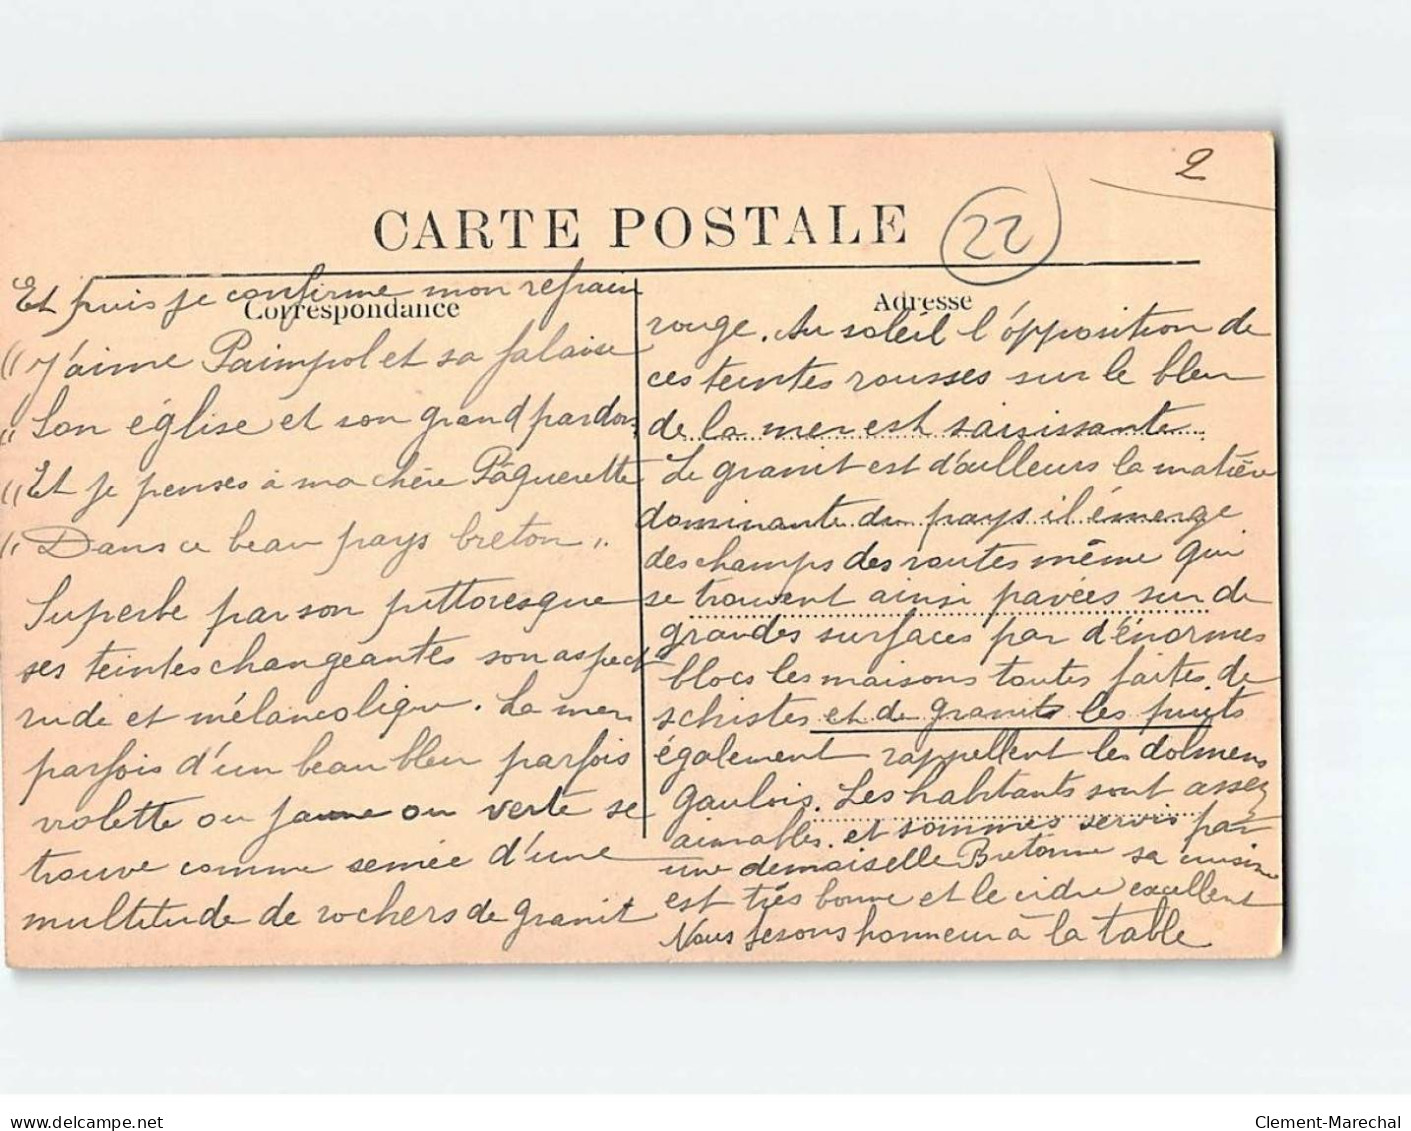 2
CARTE POSTALE
22
Correspondance
Et puis je confirme mon refrain
"J'aime Paimpol et sa falaise
"Son église et son grand pardon,
"Et je penses à ma chère Pâquerette
"Dans ce beau pays breton"
Superbe par son pittoresque
ses teintes changeantes son aspect
rude et mélancolique. La mer
parfois d'un beau bleu parfois
violette ou jaune ou verte se
trouve comme semée d'une
multitude de rochers de granit
Adresse
rouge. Au soleil l'opposition de
ces teintes rousses sur le bleu
de la mer est saisissante.
Le granit est d'ailleurs la matière
dominante du pays il émerge
des champs des routes même qui
se trouvent ainsi pavées sur de
grandes surfaces par d'énormes
blocs les maisons toutes faites de
schistes et de granits les puits
également rappellent les dolmens
gaulois. Les habitants sont assez
aimables. et sommes servis par
une demoiselle Bretonne sa cuisine
est très bonne et le cidre excellent
Nous ferons honneur à la table
www.delcampe.net
Clement-Marechal